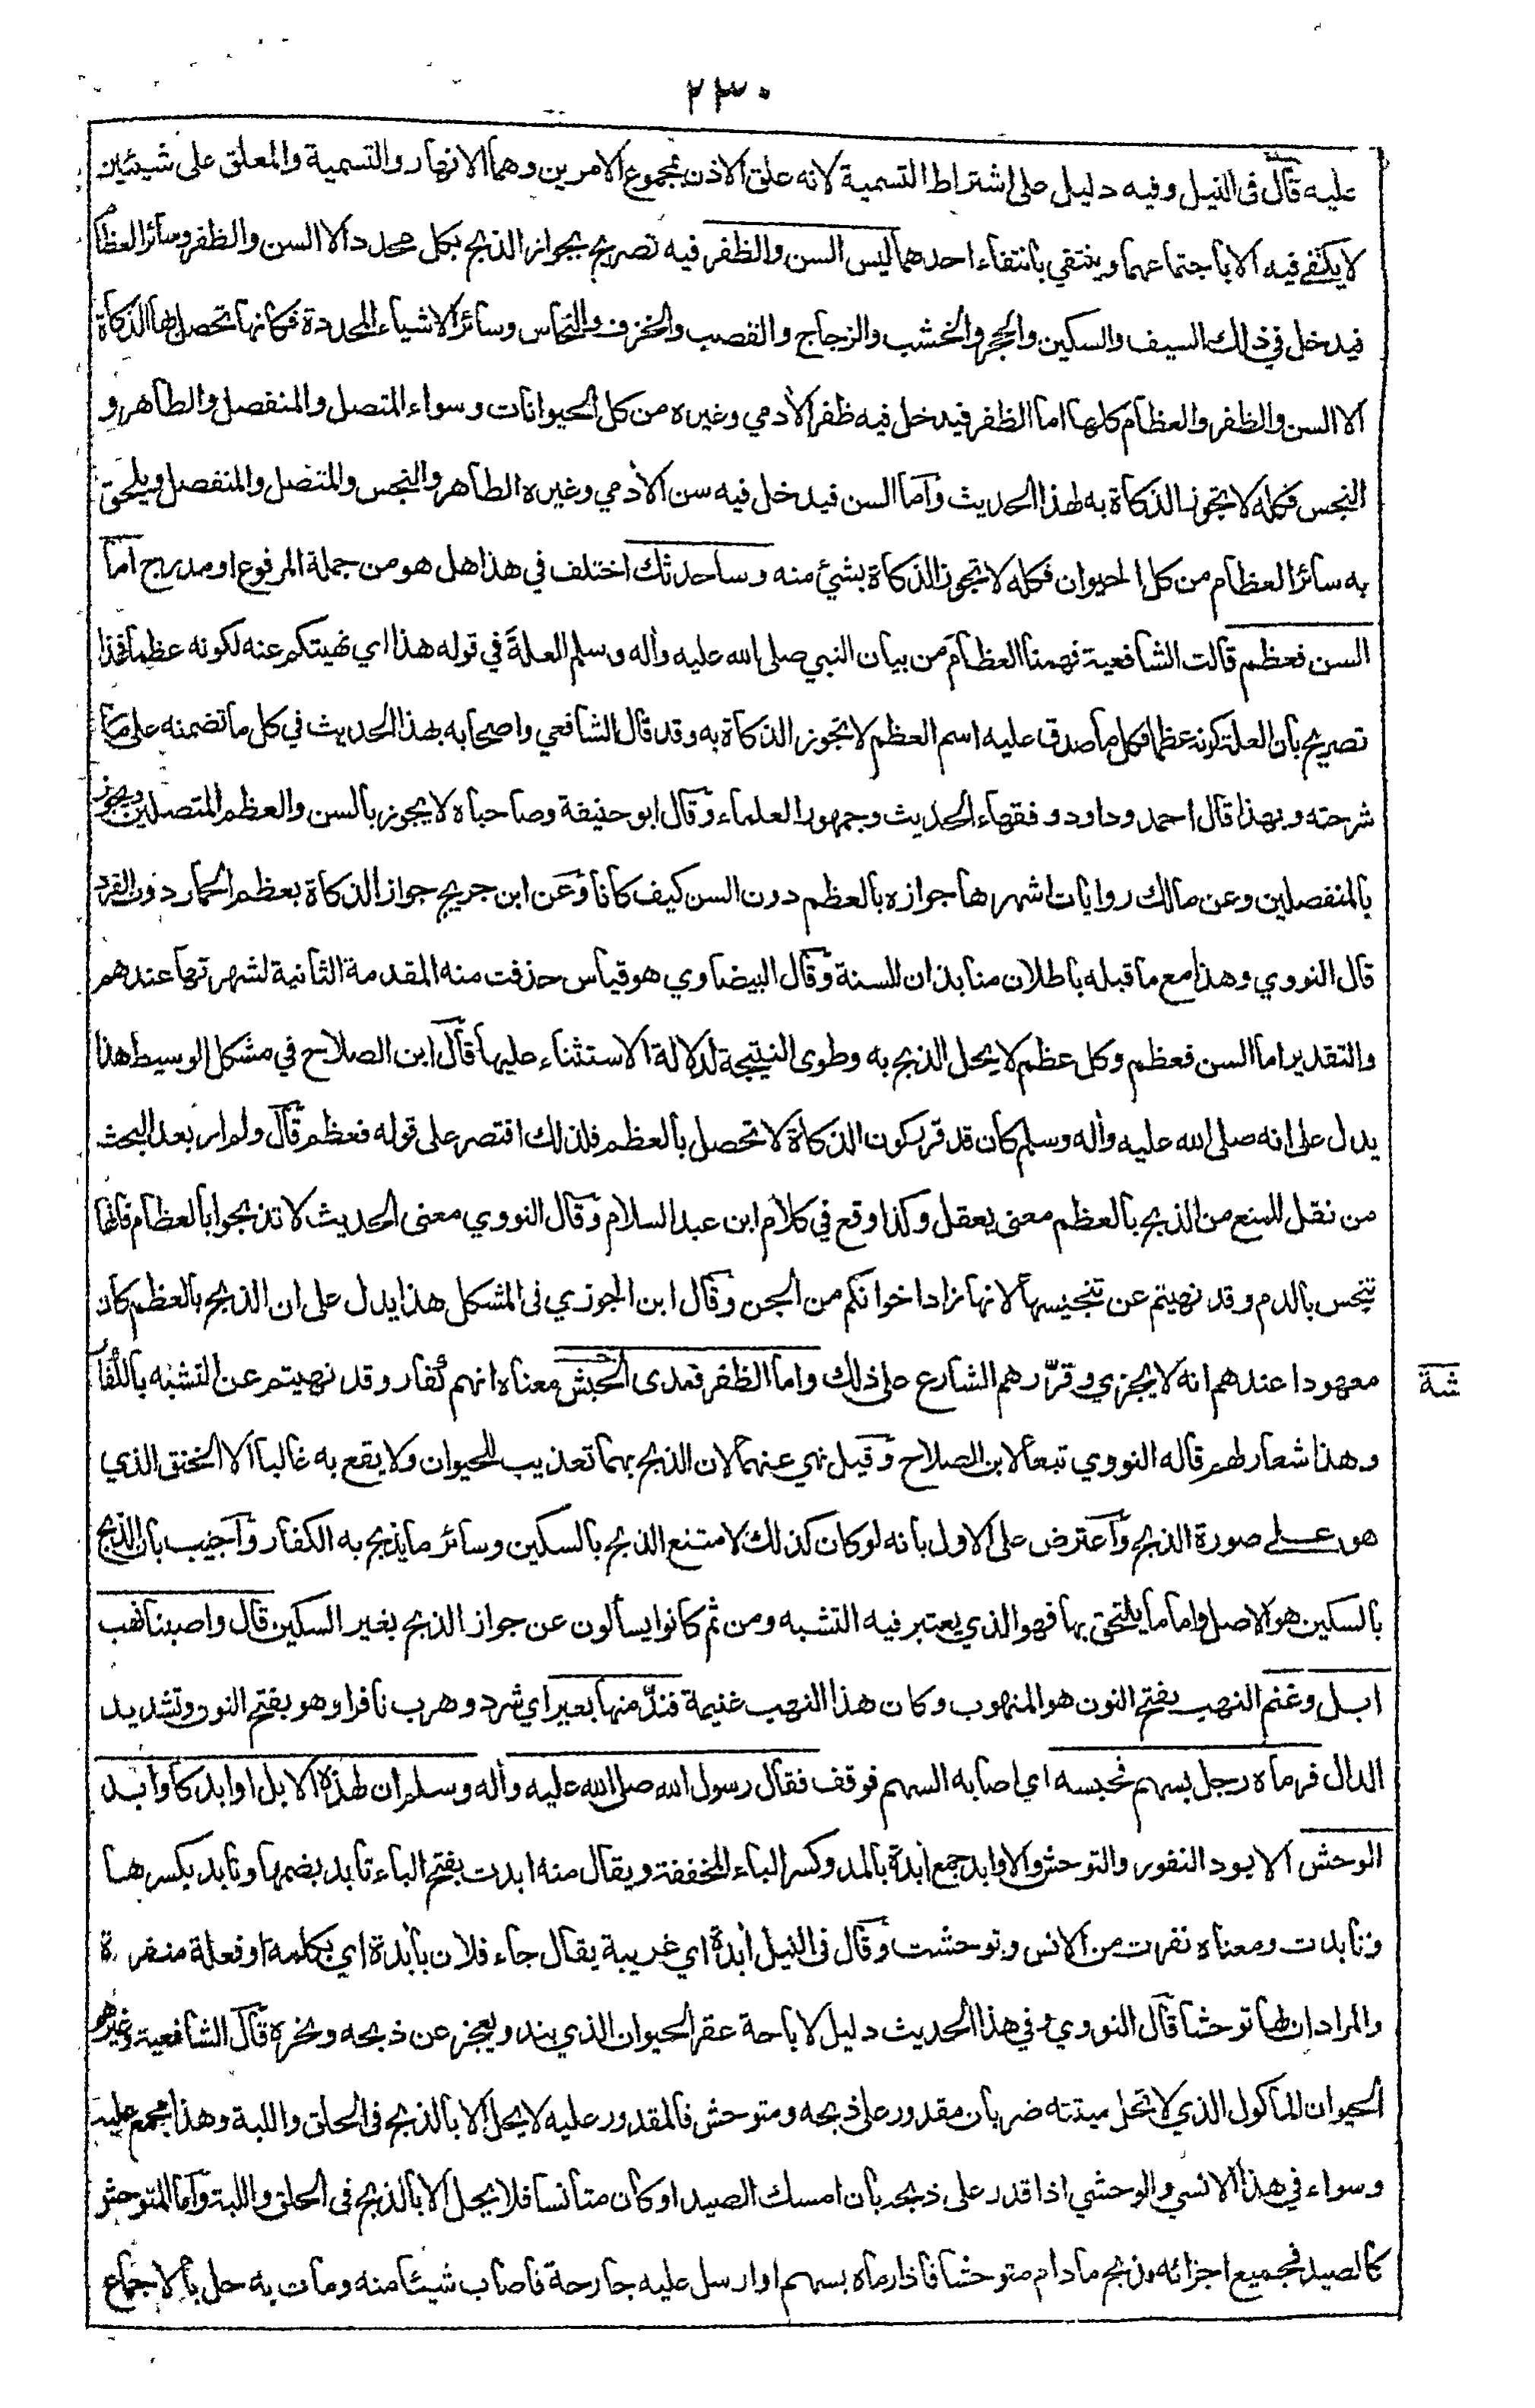 ٢٣٠
عليه قال فى النيل وفيه دليل على اشتراط التسمية لانه علق الاذن بمجموع الامرين وهما الانهار والتسمية والمعلق على شيئين
لا يكتفى فيه الا باجتماعهما وينتفي بانتفاء احدهما ليس السن والظفر فيه تصريح بجواز الذبح بكل محدد الا السن والظفر وسائر العظام
فيدخل في ذلك السيف والسكين والحجر والخشب والزجاج والقصب والخزف والنحاس وسائر الاشياء المحددة فكانها تحصل بها الذكاة
الا السن والظفر والعظام كلها اما الظفر فيدخل فيه ظفر الأدمي وغيره من كل الحيوانات وسواء المتصل والمنفصل والطاهر و
النجس فكله لا تجوز الذكاة به لهذا الحديث وأما السن فيدخل فيه سن الأدمي وغيره الطاهر والنجس والمتصل والمنفصل ويلحق
به سائر العظام من كل الحيوان فكله لا تجوز الذكاة بشئ منه وساحدثك اختلف في هذا هل هو من جملة المرفوع او مدرج اما
السن فعظم قالت الشافعية فهمنا العظام من بيان النبي صلى الله عليه وأله وسلم العلة في قوله هذا اي نهيتكم عنه لكونه عظما فهذا
تصريح بأن العلة كونه عظما فكل ما صدق عليه اسم العظم لا تجوز الذكاة به وقد قال الشافعي واصحابه بهذا الحديث في كل ما تضمنه على ما
شرحته وبهذا قال احمد وداود وفقهاء الحديث وجمهور العلماء وقال ابو حنيفة وصاحباه لا يجوز بالسن والعظم المتصلين ويجوز
بالمنفصلين وعن مالك روايات اشهرها جوازه بالعظم دون السن كيف كانا وعن ابن جريج جواز الذكاة بعظم الحمار دون القرد
قال النووي وهذا مع ما قبله باطلان منابذان للسنة وقال البيضاوي هو قياس حذفت منه المقدمة الثانية لشهرتها عندهم
والتقدير اما السن فعظم وكل عظم لا يحل الذبح به وطوى النتيجة لدلالة الاستثناء عليها قال ابن الصلاح في مشكل الوسيط هذا
يدل على انه صلى الله عليه وأله وسلم كان قد قرر كون الذكاة لا تحصل بالعظم فلذلك اقتصر على قوله فعظم قال ولم ار بعد البحث
من نقل للمنع من الذبح بالعظم معنى يعقل وكذا وقع في كلام ابن عبد السلام وقال النووي معنى الحديث لا تذبحوا بالعظام فانها
تنجس بالدم وقد نهيتم عن تنجيسها لانها زاد اخوانكم من الجن وقال ابن الجوزي فى المشكل هذا يدل على ان الذبح بالعظم كان
معهودا عندهم انه لا يجزي وقرّرهم الشارع على ذلك واما الظفر فمدى الحبش معناه انهم كفار وقد نهيتم عن التشبه بالكفار
شة
وهذا شعار لهم قاله النووي تبعا لابن الصلاح وقيل نهي عنهما لان الذبح بهما تعذيب للحيوان ولا يقع به غالبا الا الخنق الذي
هو على صورة الذبح وأعترض على الاول بانه لو كان كذلك لامتنع الذبح بالسكين وسائر ما يذبح به الكفار وأجيب بان الذبح
بالسكين هو الاصل واما ما يلتحق بها فهو الذي يعتبر فيه التشبه ومن ثم كانوا يسألون عن جواز الذبح بغير السكين قال واصبنا نهب
ابل وغنم النهب بفتح النون هو المنهوب وكان هذا النهب غنيمة فندّ منها بعير اي شرد وهرب نافرا وهو بفتح النون وتشديد
الدال فرماه رجل بسهم فحبسه اي اصابه السهم فوقف فقال رسول الله صلى الله عليه وأله وسلم ان لهذه الابل اوابد كاوابد
الوحش الابود النفور والتوحش والاوابد جمع أبدة بالمد وكسر الباء المخففة ويقال منه ابدت بفتح الباء تابد بضمها وتابد بكسرها
وتابدت ومعناه نفرت من الانس وتوحشت وقال فى النيل أبدة اي غريبة يقال جاء فلان بأبدة اي بكلمة او فعلة منفرة
والمراد ان لها توحشا قال النووي وفي هذا الحديث دليل لاباحة عقر الحيوان الذي يند ويعجز عن ذبحه ونحره قال الشافعية وغيرهم
الحيوان المأكول الذي لا تحل ميتته ضربان مقدور على ذبحه ومتوحش فالمقدور عليه لا يحل الا بالذبح فى الحلق واللبة وهذا مجمع عليه
وسواء في هذا الانسي والوحشي اذا قدر على ذبحه بان امسك الصيد او كان متأنسا فلا يحل الا بالذبح فى الحلق واللبة وأما المتوحش
كالصيد فجميع اجزائه مذبح ما دام متوحشا فاذا رماه بسهم او ارسل عليه جارحة فاصاب شيئا منه ومات به حل بالاجماع